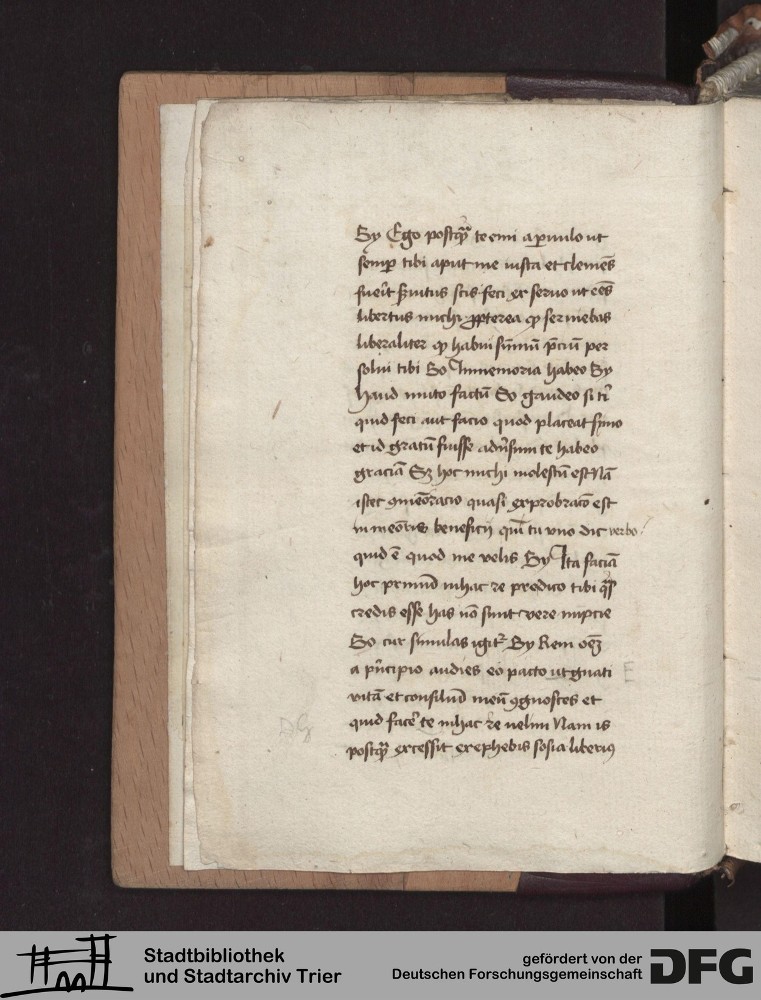 Sy Ego postq̄ te emi a ꝑuulo ut
semꝑ tibi aput me iusta et clemēs
fuerit ẜuitus scis feci ex seruo ut eēs
libertus michi ꝓpterea ꝙ seruiebas
liberaliter ꝙ habui sūmū p̄ciū per
solui tibi So In memoria habeo Sy
haud muto factū So gaudeo si t͛
quid feci aut facio quod placeat symo
et id gratū fuisse aduͦsum te habeo
graciā Sꝫ hoc michi molestū est Nā
istec ꝯmēoracio quasi exprobracō est
in meōris beneficij quī tu vno dic verbo
quid ē quod me velis Sy Ita faciā
hoc primū in hac re predico tibi q̄s
credis esse has nō sunt vere nupcie
So cur simulas igit͛ Sy Rem oēꝫ
a pͥncipio audies eo pacto ut gnati
vitā et consiliū meū ꝯgnosces et
quid facͤ te in hac re uelim Nam is
postq̄ excessit ex ephebis sosia liberiꝰ
E
Stadtbibliothek
und Stadtarchiv Trier
gefördert von der
Deutschen Forschungsgemeinschaft
DFG